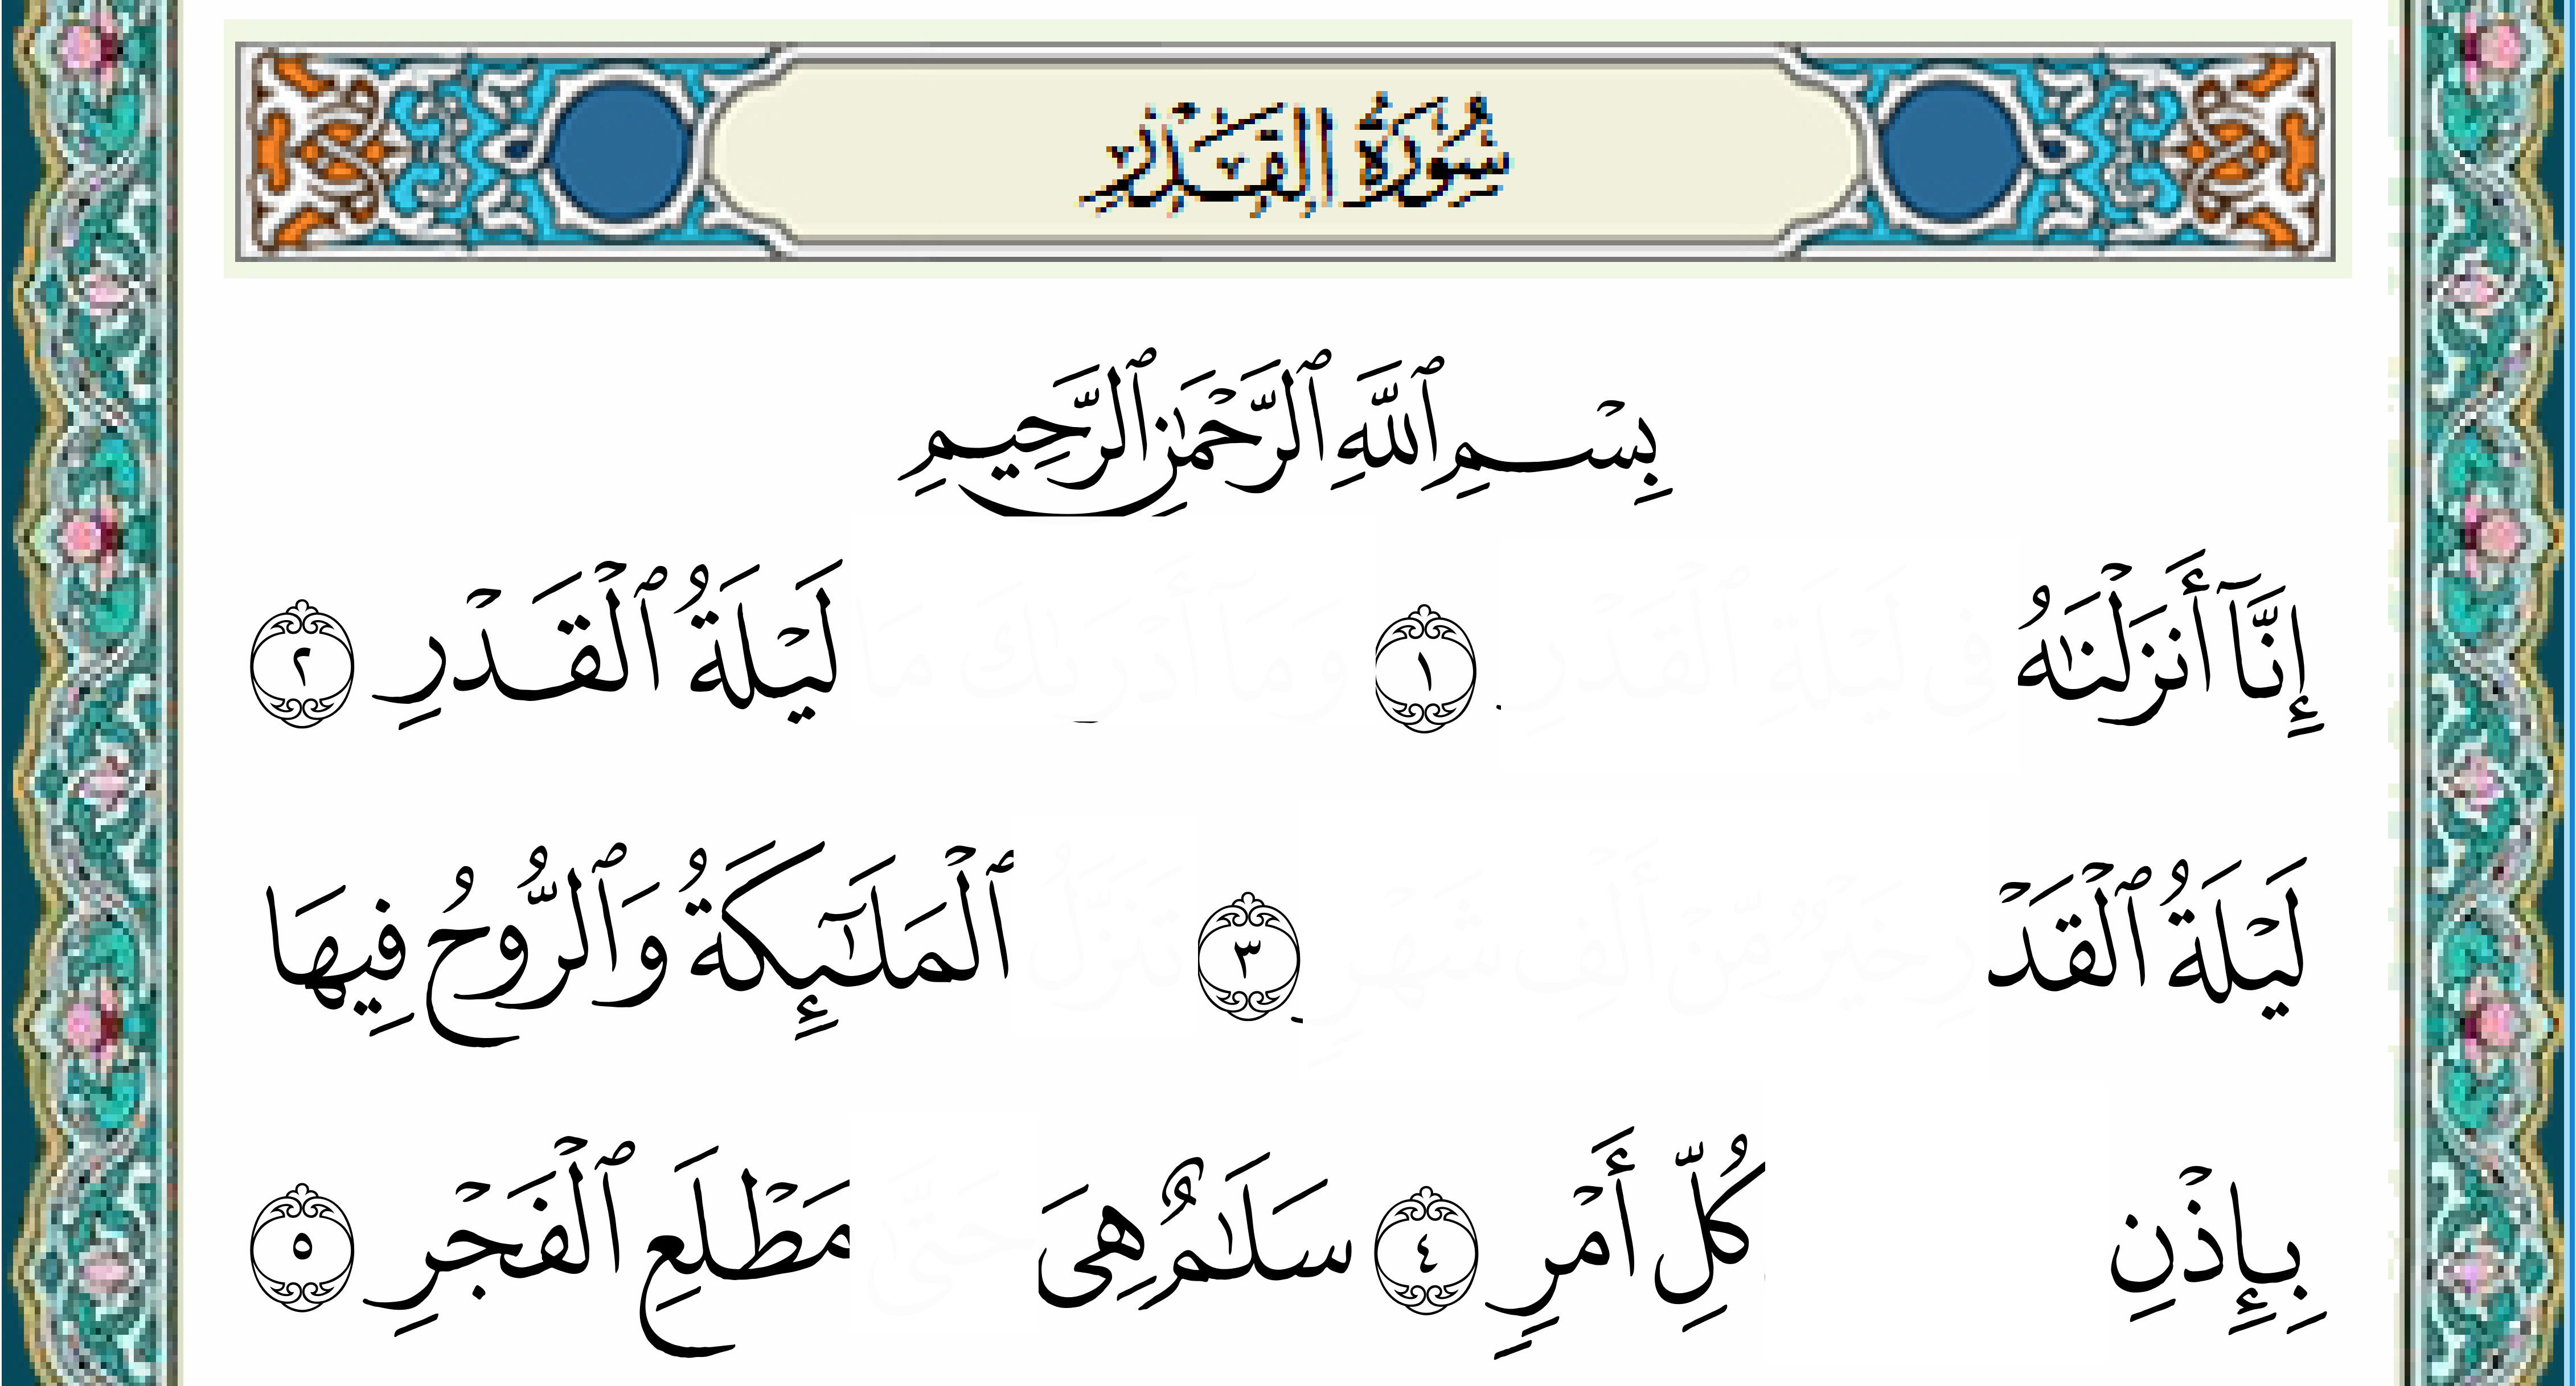 سُورَةُ القَدْرِ
بِسْمِ ٱللَّهِ ٱلرَّحْمَٰنِ ٱلرَّحِيمِ
إِنَّآ أَنزَلْنَٰهُ ١ لَيْلَةُ ٱلْقَدْرِ ٢
لَيْلَةُ ٱلْقَدْ ٣ ٱلْمَلَٰٓئِكَةُ وَٱلرُّوحُ فِيهَا
بِإِذْنِ كُلِّ أَمْرٍ ٤ سَلَٰمٌ هِىَ مَطْلَعِ ٱلْفَجْرِ ٥